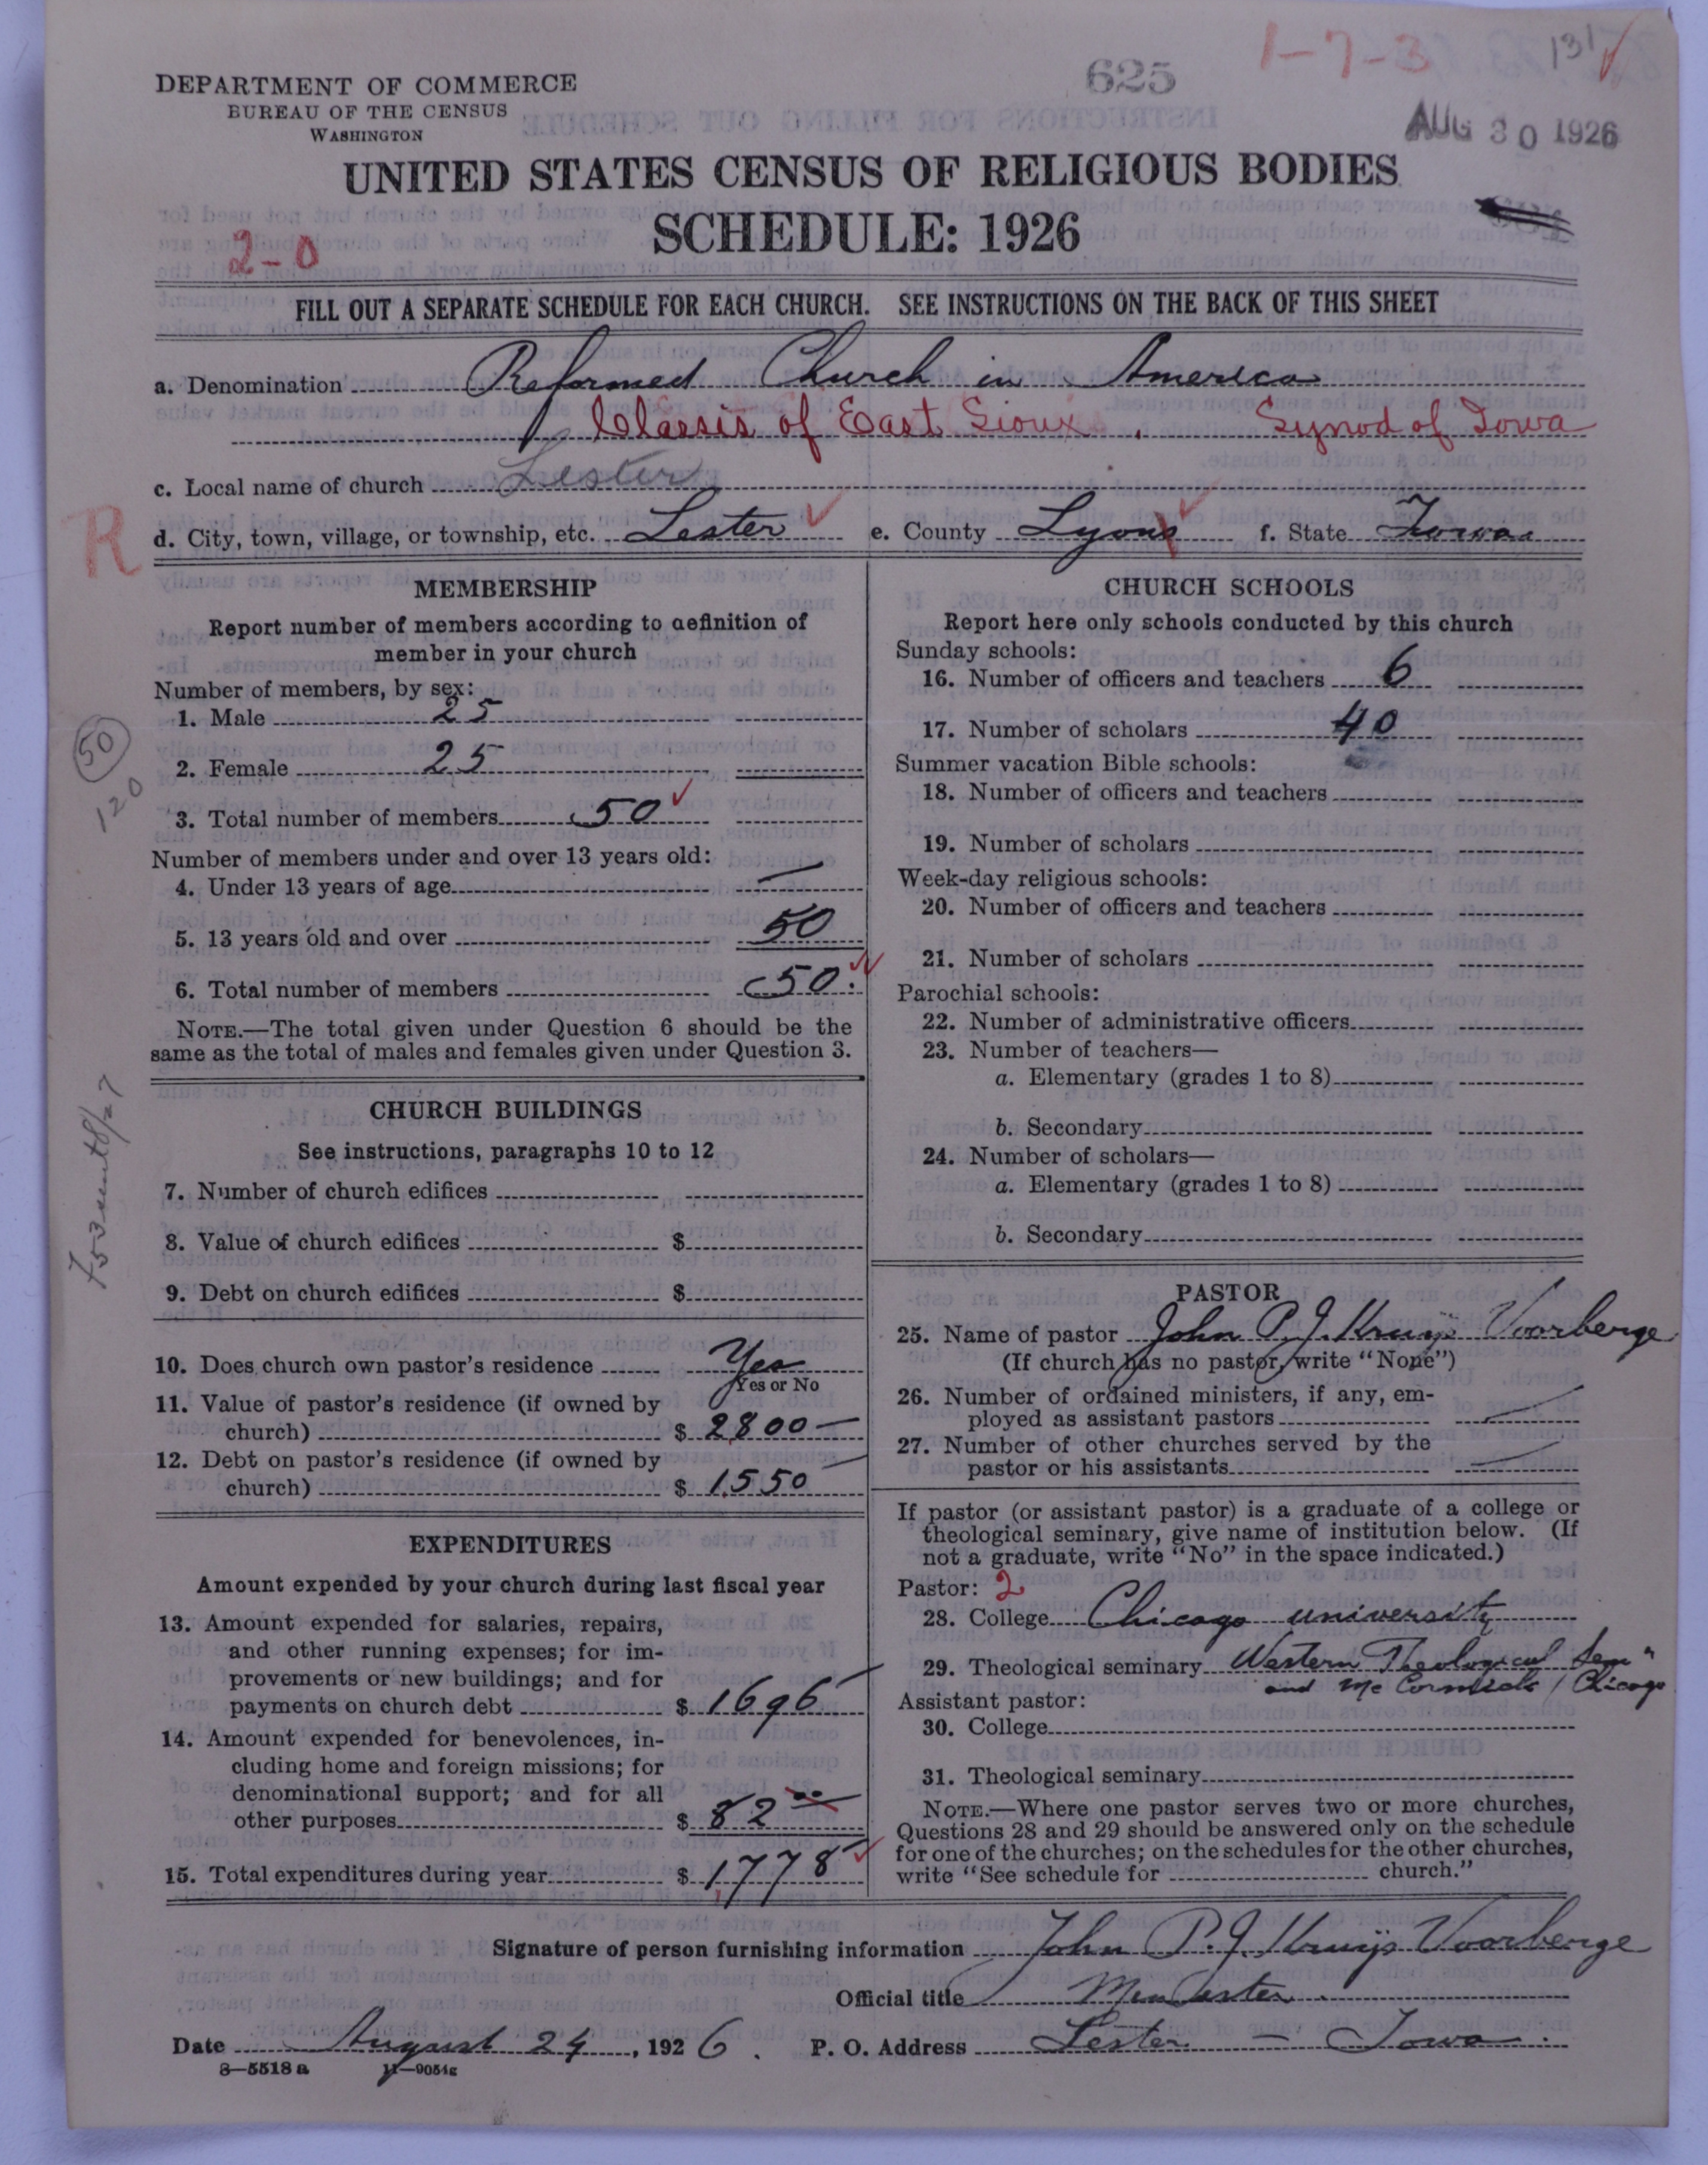 625
1-7-3
131
AUG 30 1926
DEPARTMENT OF COMMERCE
BUREAU OF THE CENSUS
WASHINGTON
UNITED STATES CENSUS OF RELIGIOUS BODIES
SCHEDULE: 1926
2-0
FILL OUT A SEPARATE SCHEDULE FOR EACH CHURCH. SEE INSTRUCTIONS ON THE BACK OF THIS SHEET
a. Denomination Reformed Church in America
Classis of East Sioux. Synod of Iowa
c. Local name of church Lester
R
d. City, town, village, or township, etc. Lester e. County Lyons f. State Iowa
MEMBERSHIP
Report number of members according to definition of
member in your church
Number of members, by sex:
1. Male 25
2. Female 25
50
120
3. Total number of members 50
Number of members under and over 13 years old:
4. Under 13 years of age —
5. 13 years old and over 50
6. Total number of members 50.
NOTE.—The total given under Question 6 should be the
same as the total of males and females given under Question 3.
CHURCH BUILDINGS
See instructions, paragraphs 10 to 12
7. Number of church edifices
8. Value of church edifices $
9. Debt on church edifices $
10. Does church own pastor's residence Yes
Yes or No
11. Value of pastor's residence (if owned by
church) $ 2800—
12. Debt on pastor's residence (if owned by
church) $ 1550—
EXPENDITURES
Amount expended by your church during last fiscal year
13. Amount expended for salaries, repairs,
and other running expenses; for im-
provements or new buildings; and for
payments on church debt $ 1696—
14. Amount expended for benevolences, in-
cluding home and foreign missions; for
denominational support; and for all
other purposes $ 82 00
15. Total expenditures during year $ 1778—
CHURCH SCHOOLS
Report here only schools conducted by this church
Sunday schools:
16. Number of officers and teachers 6
17. Number of scholars 40
Summer vacation Bible schools:
18. Number of officers and teachers
19. Number of scholars
Week-day religious schools:
20. Number of officers and teachers
21. Number of scholars
Parochial schools:
22. Number of administrative officers
23. Number of teachers—
a. Elementary (grades 1 to 8)
b. Secondary
24. Number of scholars—
a. Elementary (grades 1 to 8)
b. Secondary
PASTOR
25. Name of pastor John P. J. Kruijs Voorberge
(If church has no pastor, write "None")
26. Number of ordained ministers, if any, em-
ployed as assistant pastors —
27. Number of other churches served by the
pastor or his assistants —
If pastor (or assistant pastor) is a graduate of a college or
theological seminary, give name of institution below. (If
not a graduate, write "No" in the space indicated.)
Pastor: 2
28. College Chicago university
29. Theological seminary Western Theological Sem"
and Mc Cormick / Chicago
Assistant pastor:
30. College
31. Theological seminary
NOTE.—Where one pastor serves two or more churches,
Questions 28 and 29 should be answered only on the schedule
for one of the churches; on the schedules for the other churches,
write "See schedule for church."
Signature of person furnishing information John P. J. Kruijs Voorberge
Official title Minister.
Date August 24, 1926. P. O. Address Lester — Iowa.
8—5518 a 11—9054g